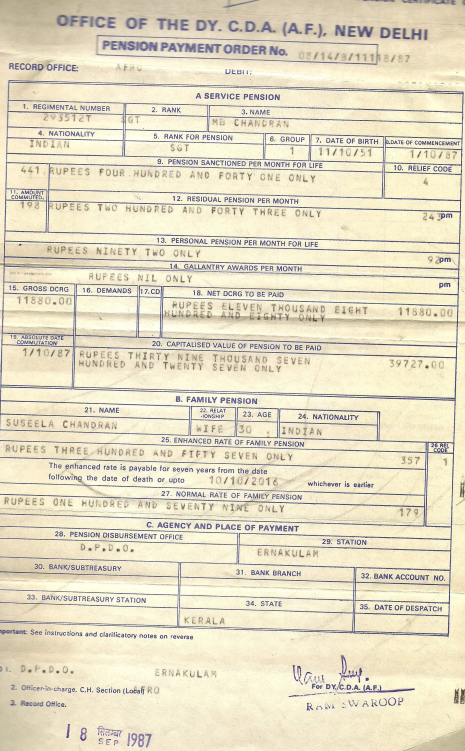 OFFICE OF THE DY. C.D.A. (A.F.), NEW DELHI
PENSION PAYMENT ORDER No. 08/14/8/11118/87
RECORD OFFICE: AFRO DEBIT:
A SERVICE PENSION
1. REGIMENTAL NUMBER 2. RANK 3. NAME
293512T SGT MB CHANDRAN
4. NATIONALITY 5. RANK FOR PENSION 6. GROUP 7. DATE OF BIRTH 8.DATE OF COMMENCEMENT
INDIAN SGT 1 11/10/51 1/10/87
9. PENSION SANCTIONED PER MONTH FOR LIFE 10. RELIEF CODE
441. RUPEES FOUR HUNDRED AND FORTY ONE ONLY 4
11. AMOUNT COMMUTED. 12. RESIDUAL PENSION PER MONTH
198 RUPEES TWO HUNDRED AND FORTY THREE ONLY 243pm
13. PERSONAL PENSION PER MONTH FOR LIFE
RUPEES NINETY TWO ONLY 92pm
14. GALLANTRY AWARDS PER MONTH
RUPEES NIL ONLY pm
15. GROSS DCRG 16. DEMANDS 17.CD 18. NET DCRG TO BE PAID
11880.00 RUPEES ELEVEN THOUSAND EIGHT 11880.00
HUNDRED AND EIGHTY ONLY
19. ABSOLUTE DATE COMMUTATION 20. CAPITALISED VALUE OF PENSION TO BE PAID
1/10/87 RUPEES THIRTY NINE THOUSAND SEVEN 39727.00
HUNDRED AND TWENTY SEVEN ONLY
B. FAMILY PENSION
21. NAME 22. RELAT-IONSHIP 23. AGE 24. NATIONALITY
SUSEELA CHANDRAN WIFE 30 INDIAN
25. ENHANCED RATE OF FAMILY PENSION 26 REL CODE
RUPEES THREE HUNDRED AND FIFTY SEVEN ONLY 357 1
The enhanced rate is payable for seven years from the date
following the date of death or upto 10/10/2016 whichever is earlier
27. NORMAL RATE OF FAMILY PENSION
RUPEES ONE HUNDRED AND SEVENTY NINE ONLY 179
C. AGENCY AND PLACE OF PAYMENT
28. PENSION DISBURSEMENT OFFICE 29. STATION
D.P.D.O. ERNAKULAM
30. BANK/SUBTREASURY 31. BANK BRANCH 32. BANK ACCOUNT NO.
33. BANK/SUBTREASURY STATION 34. STATE 35. DATE OF DESPATCH
KERALA
mportant: See instructions and clarificatory notes on reverse
1. D.P.D.O. ERNAKULAM
For DY. C.D.A. (A.F.)
2. Officer-in-charge. C.H. Section (Local) AFRO
RAM SWAROOP
3. Record Office.
18 सितम्बर SEP 1987